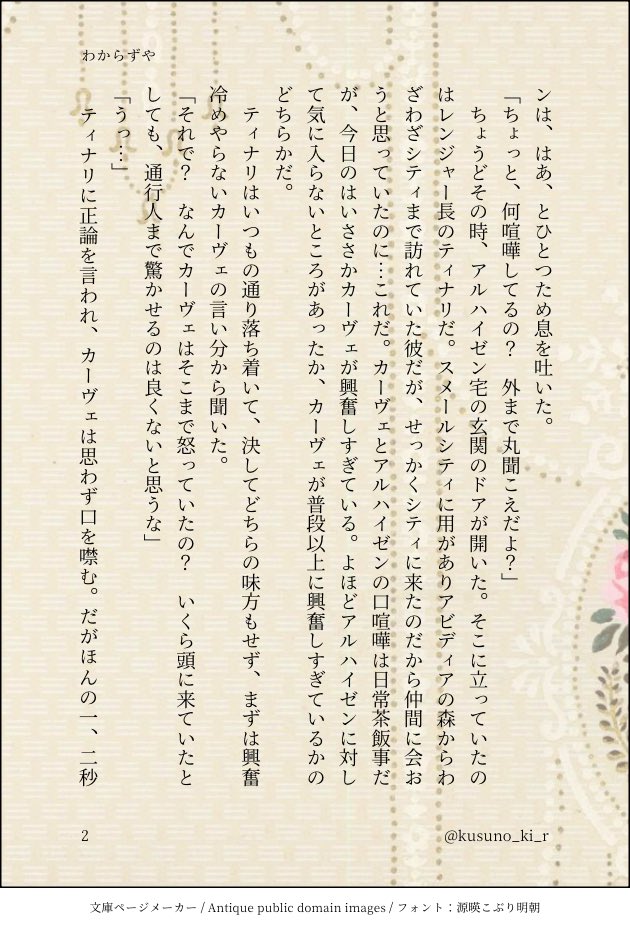 わからずや
ンは、はあ、とひとつため息を吐いた。
「ちょっと、何喧嘩してるの？　外まで丸聞こえだよ？」
　ちょうどその時、アルハイゼン宅の玄関のドアが開いた。そこに立っていたの
はレンジャー長のティナリだ。スメールシティに用がありアビディアの森からわ
ざわざシティまで訪れていた彼だが、せっかくシティに来たのだから仲間に会お
うと思っていたのに…これだ。カーヴェとアルハイゼンの口喧嘩は日常茶飯事だ
が、今日のはいささかカーヴェが興奮しすぎている。よほどアルハイゼンに対し
て気に入らないところがあったか、カーヴェが普段以上に興奮しすぎているかの
どちらかだ。
　ティナリはいつもの通り落ち着いて、決してどちらの味方もせず、まずは興奮
冷めやらないカーヴェの言い分から聞いた。
「それで？　なんでカーヴェはそこまで怒っていたの？　いくら頭に来ていたと
しても、通行人まで驚かせるのは良くないと思うな」
「うっ…」
　ティナリに正論を言われ、カーヴェは思わず口を噤む。だがほんの一、二秒
2
@kusuno_ki_r
文庫ページメーカー / Antique public domain images / フォント：源暎こぶり明朝